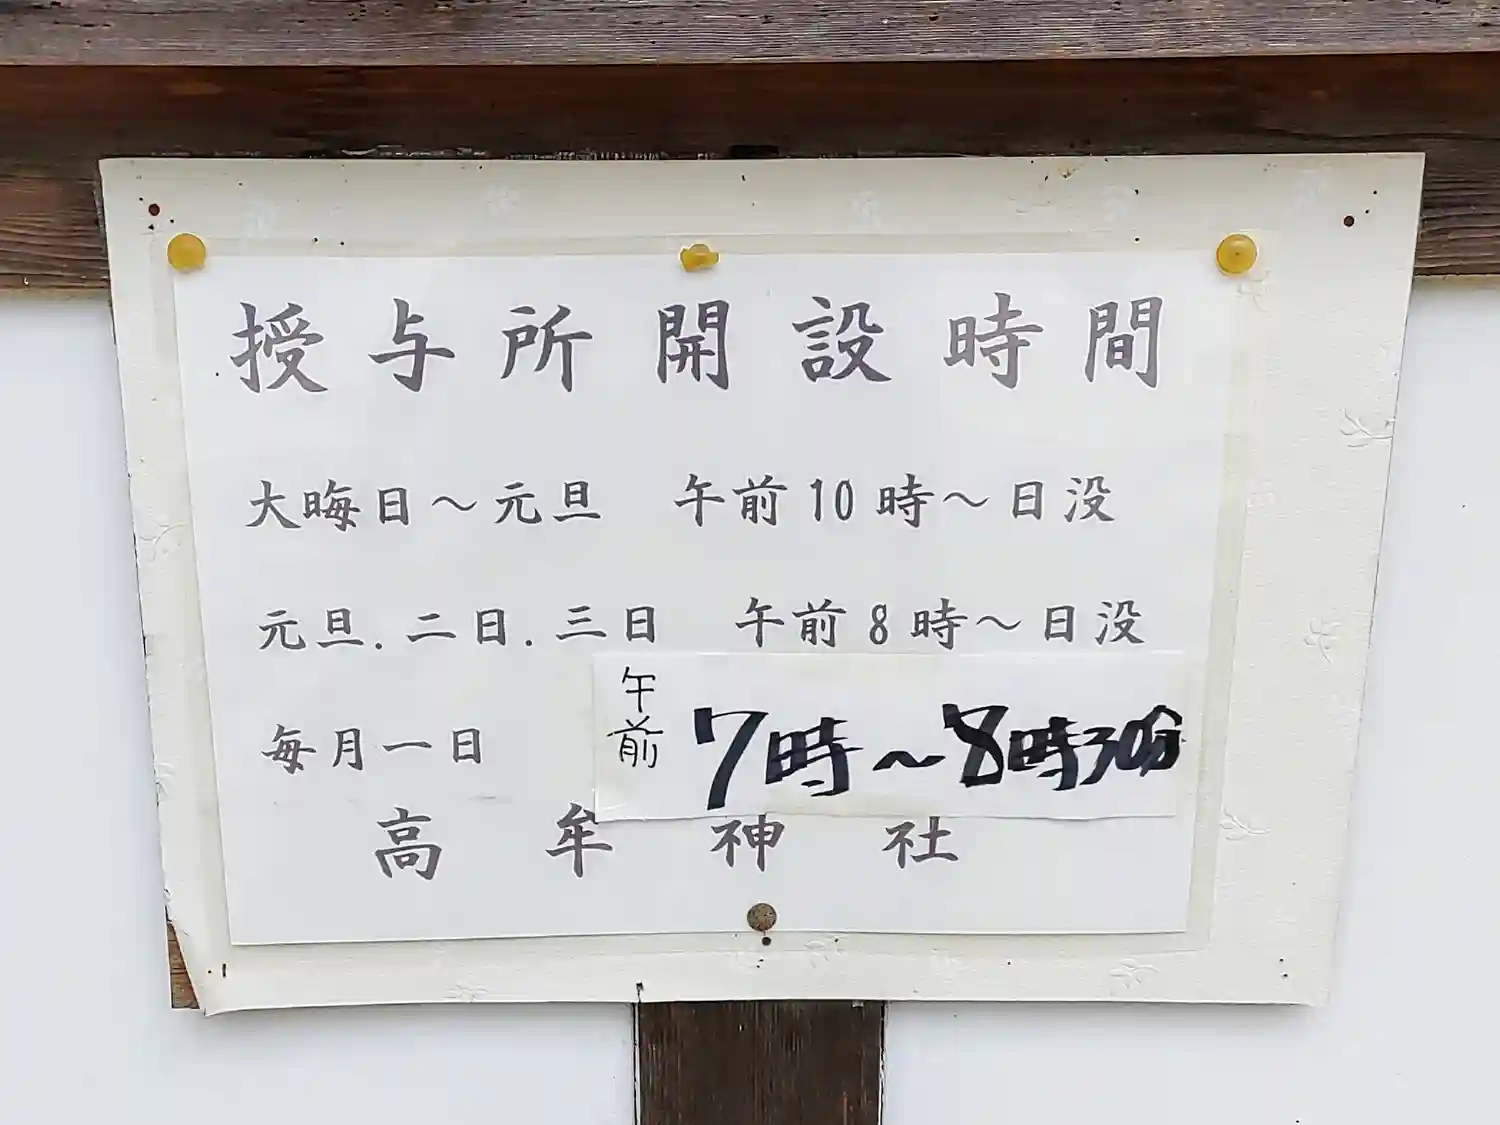 授与所開設時間
大晦日～元旦　午前10時～日没
元旦.二日.三日　午前8時～日没
毎月一日　午前 7時～8時30分
高牟神社